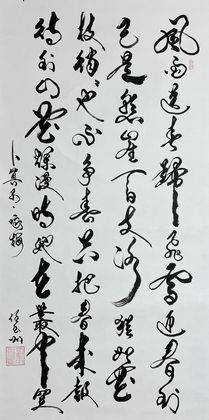 風雨送春歸飛雪迎春到
已是懸崖百丈冰猶有花
枝俏〻也不爭春只把春來報
待到山花爛漫時她在叢中笑
卜算子·詠梅